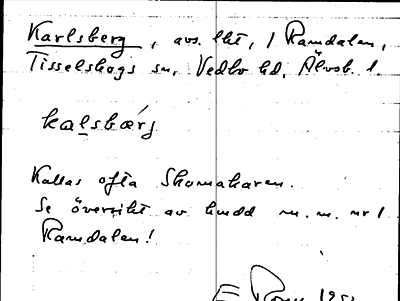 Karlsberg, avs. lht, i Ramdalen,
Tisselskogs sn, Vedbo hd, Älvsb. l.
kalsbærj
Kallas ofta Skomakaren.
Se översikt av hmdd m. m. nr 1
Ramdalen!